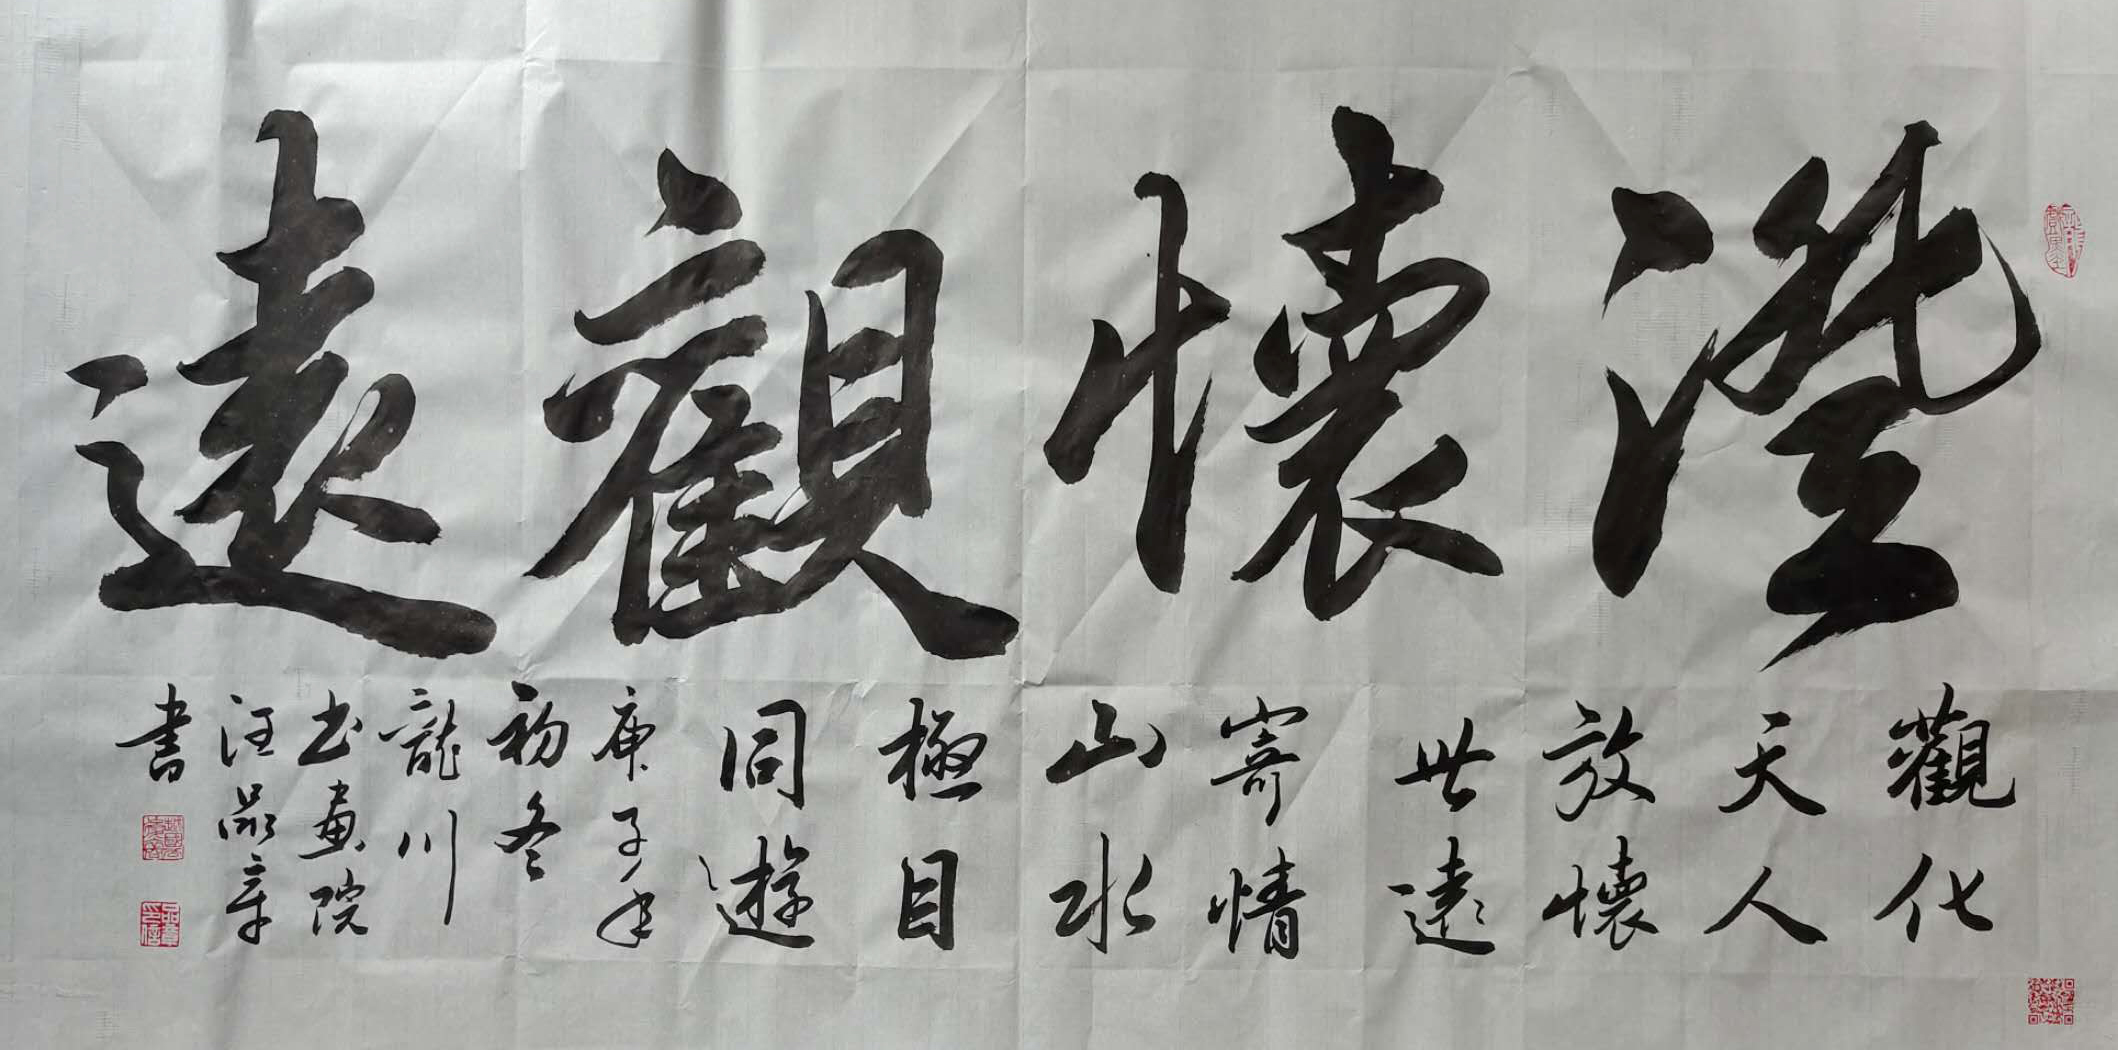 澄懷觀遠
觀化
天人
放懷
世遠
寄情
山水
極目
同遊
庚子年
初冬
龍川
书画院
汪品章
書